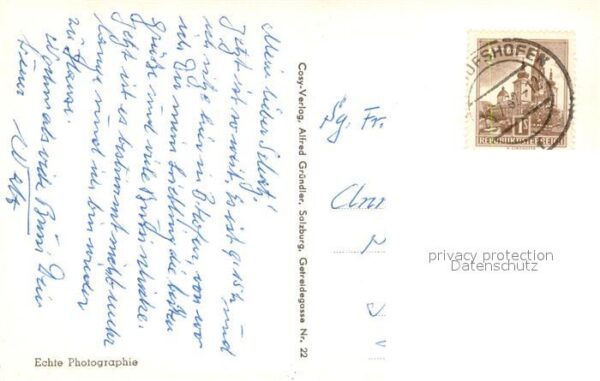 Mein lieber Schatz!
Jetzt ist es soweit. Es ist 9.15 h und
ich sitze hier in B'hofen, von wo
ich Dir mein Liebling die besten
Grüße und viele Bussi schicke.
Jetzt ist es bestimmt nicht mehr
lange und ich bin wieder
zu Hause.
Nochmals viele Bussi Dein
treuer
Echte Photographie
Cosy-Verlag, Alfred Gründler, Salzburg, Getreidegasse Nr. 22
Sg. Fr.
Ann
OFSHOFEN
1 S
REPUBLIK ÖSTERREICH
privacy protection
Datenschutz